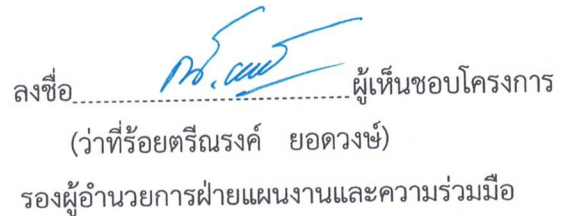 ลงชื่อ..............................ผู้เห็นชอบโครงการ
(ว่าที่ร้อยตรีณรงค์ ยอดวงษ์)
รองผู้อำนวยการฝ่ายแผนงานและความร่วมมือ